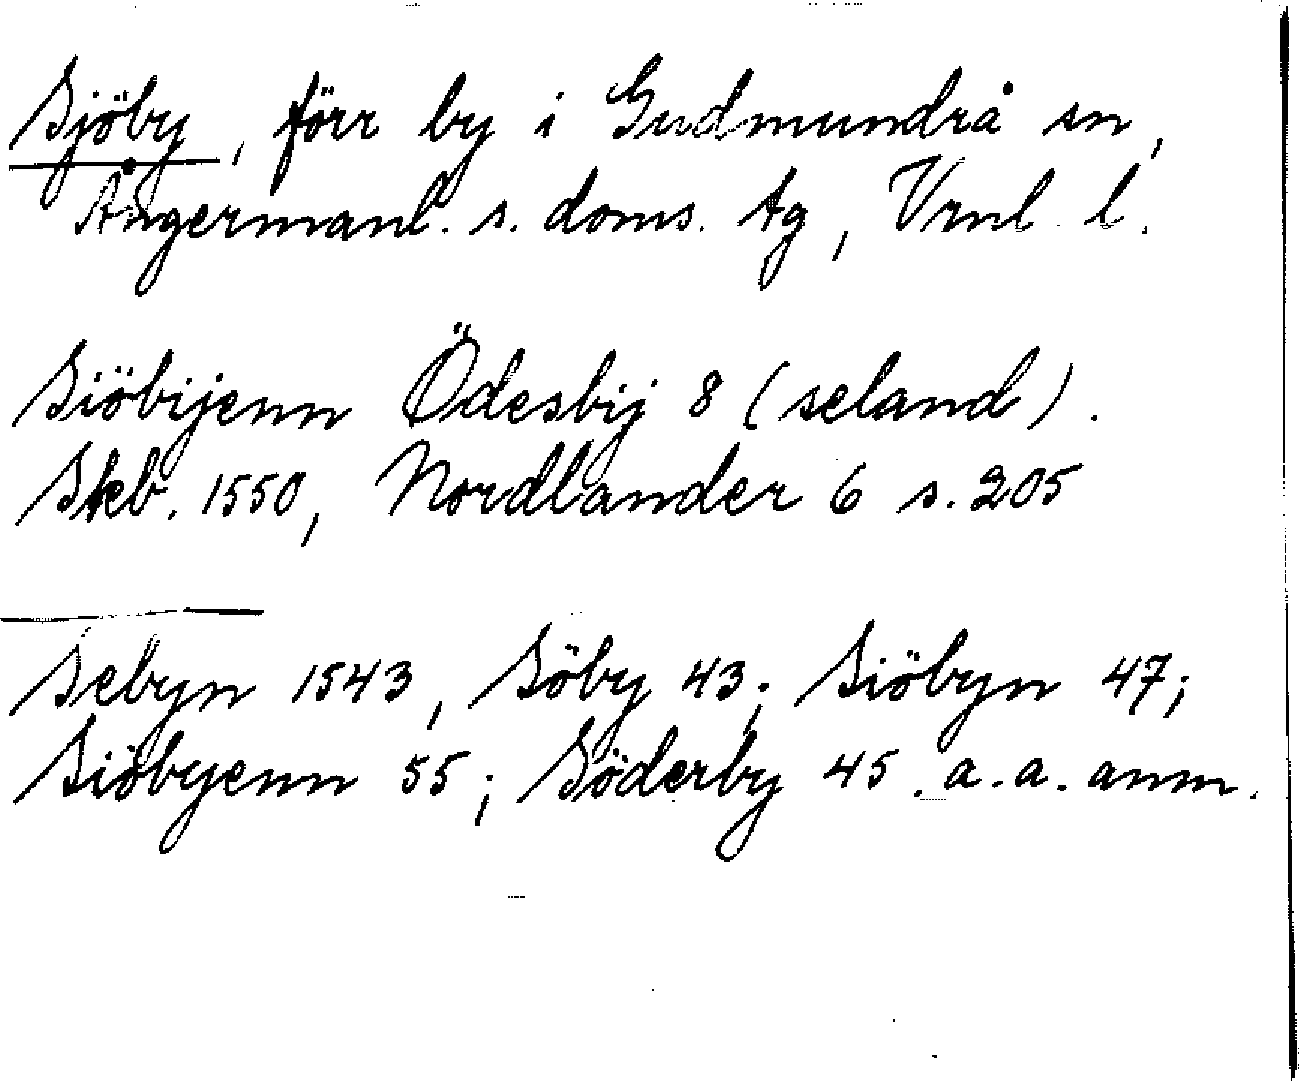 Sjöby, förr by i Gudmundrå sn,
Ångermanl. s. doms. tg, Vrnl l.
Siöbijenn Ödesbij 8 (seland).
Skb. 1550, Nordlander 6 s. 205
Sebyn 1543, Söby 43; Siöbyn 47;
Siöbyenn 55; Söderby 45. a. a. anm.